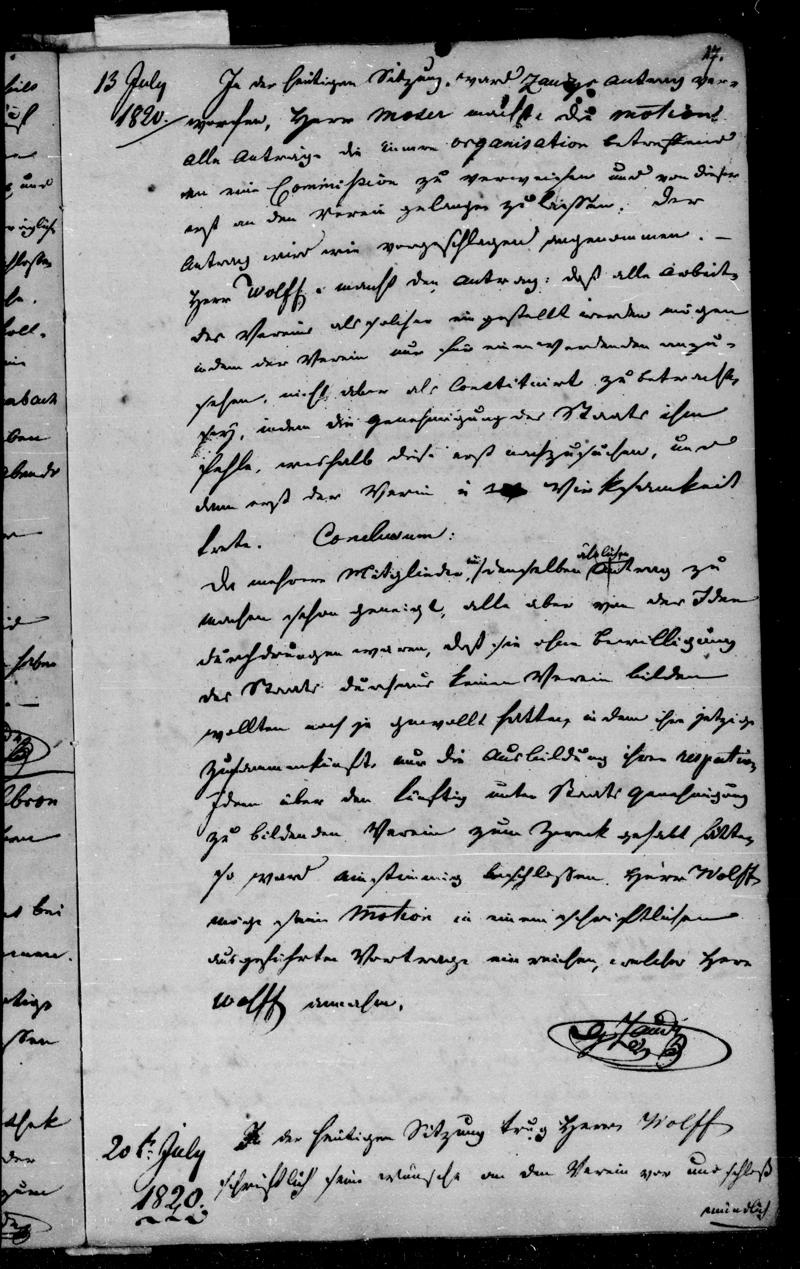 17.
13 July
1820.
In der heutigen Sitzung ward Antrag ver-
worfen, Herr Moser machte die motion
alle Anträge die innere organisation betreffend
an eine Commission zu verweisen und von dieser
erst an den Verein gelangen zu lassen. Der
Antrag wird wie vorgeschlagen angenommen. —
Herr Wolff macht den Antrag: daß alle Arbeiten
des Vereins als solcher eingestellt werden mögen
indem der Verein nur für einen werdenden anzu-
sehen, nicht aber als Constituirt zu betrachten
sey, indem die Genehmigung des Staats ihm
fehle, weshalb diese erst nachzusuchen, und
dann erst der Verein in Wirksamkeit
trete. Conclusum:
Da mehrere Mitglieder denselben Antrag zu
machen schon geneigt, alle aber von der Idee
durchdrungen waren, daß sie ohne Bewilligung
des Staats durchaus keinen Verein bilden
wollten noch je gewollt hatten, indem ihre jetzige
Zusammenkünfte nur die Ausbildung ihrer respectiven
Ideen über den künftig unter Staats Genehmigung
zu bildenden Verein zum Zweck gehabt hätten
so ward einstimmig beschlossen Herr Wolff
möge seine Motion in einem schriftlichen
ausgeführten Vortrage einreichen, welches Herr
Wolff annahm.
20t. July
1820.
In der heutigen Sitzung trug Herr Wolff
schriftlich seine Wünsche an den Verein vor und schloß
mündlich